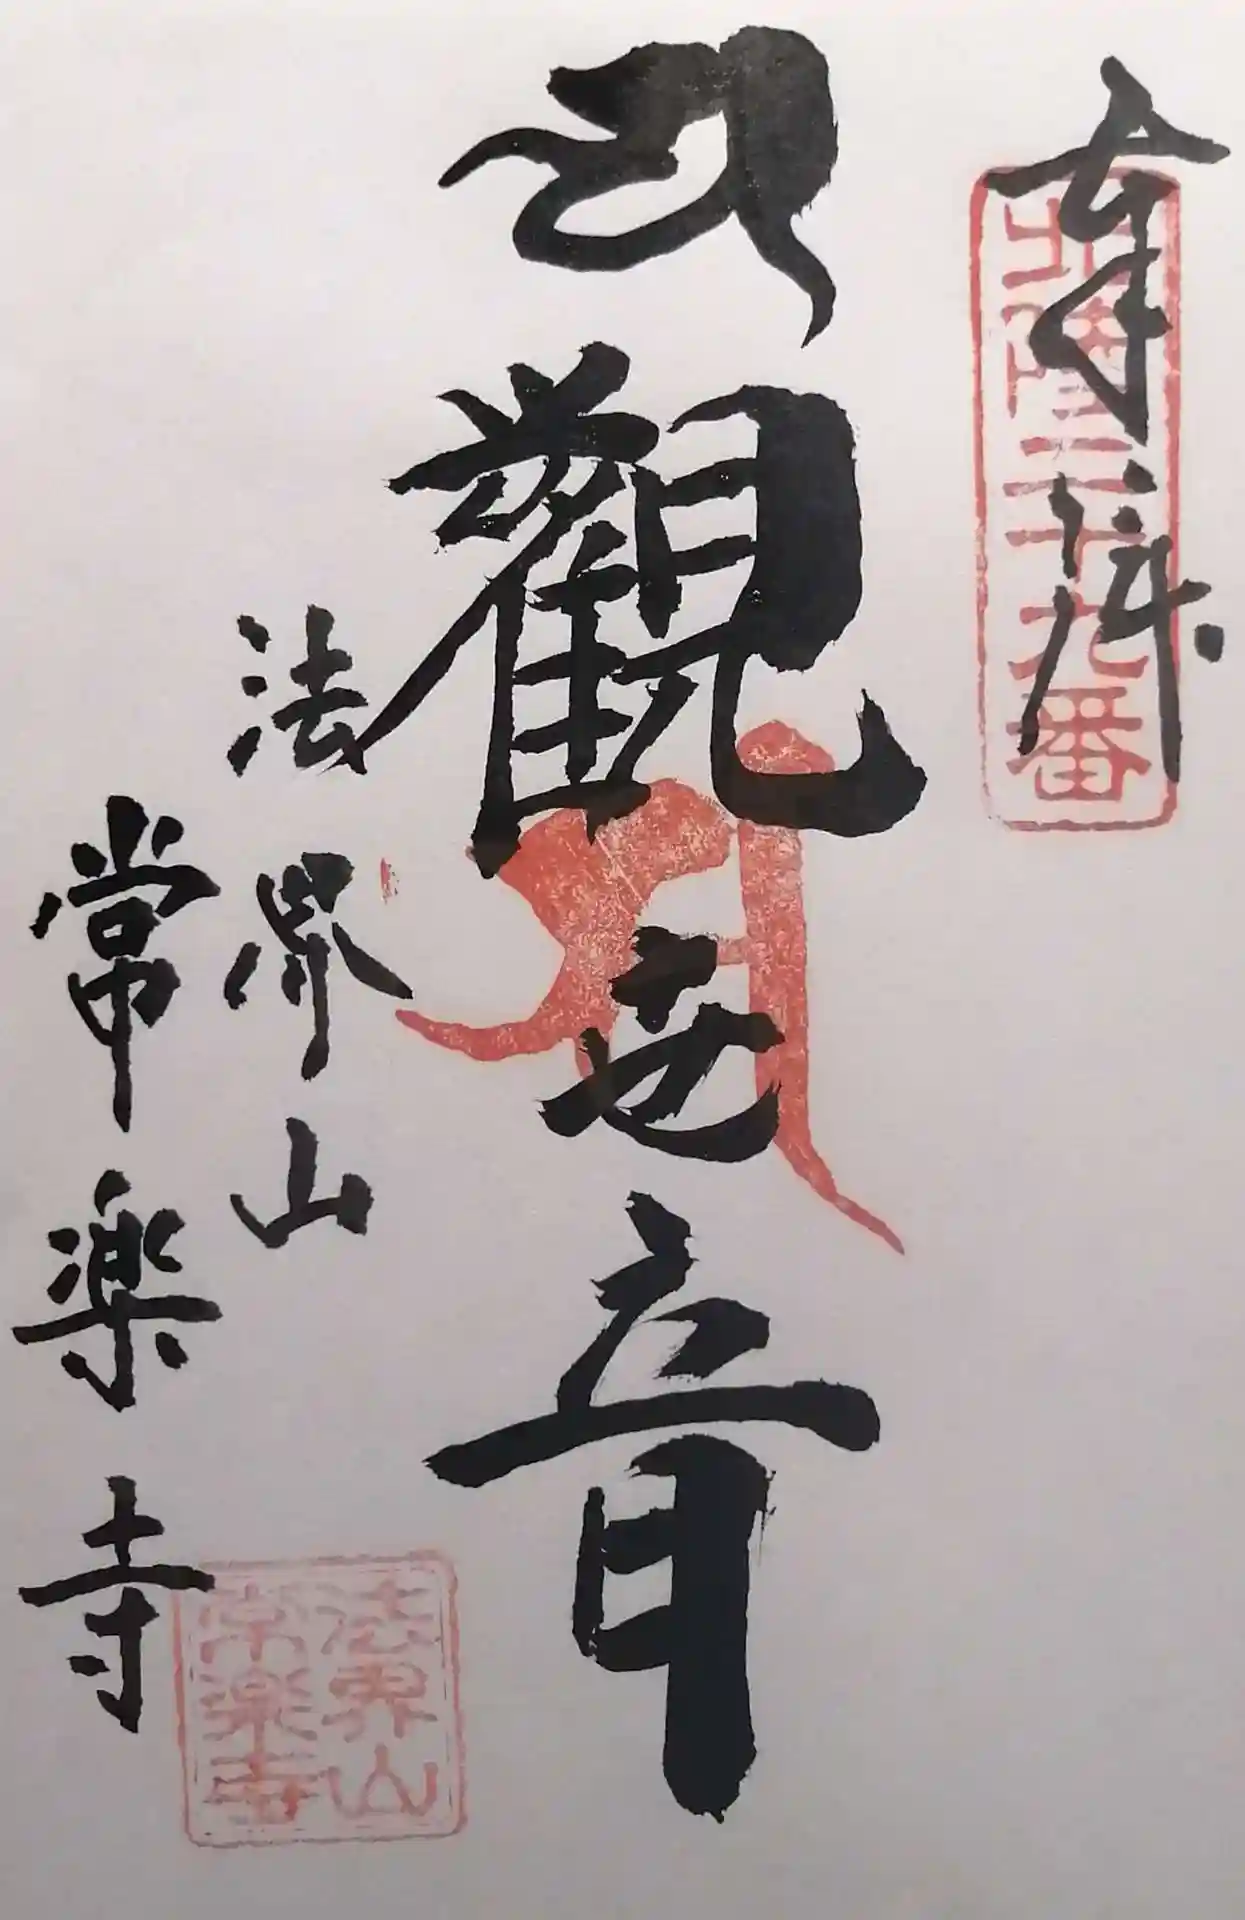 奉拝
北陸二十九番
觀世音
法界山
常楽寺
法界山
常楽寺